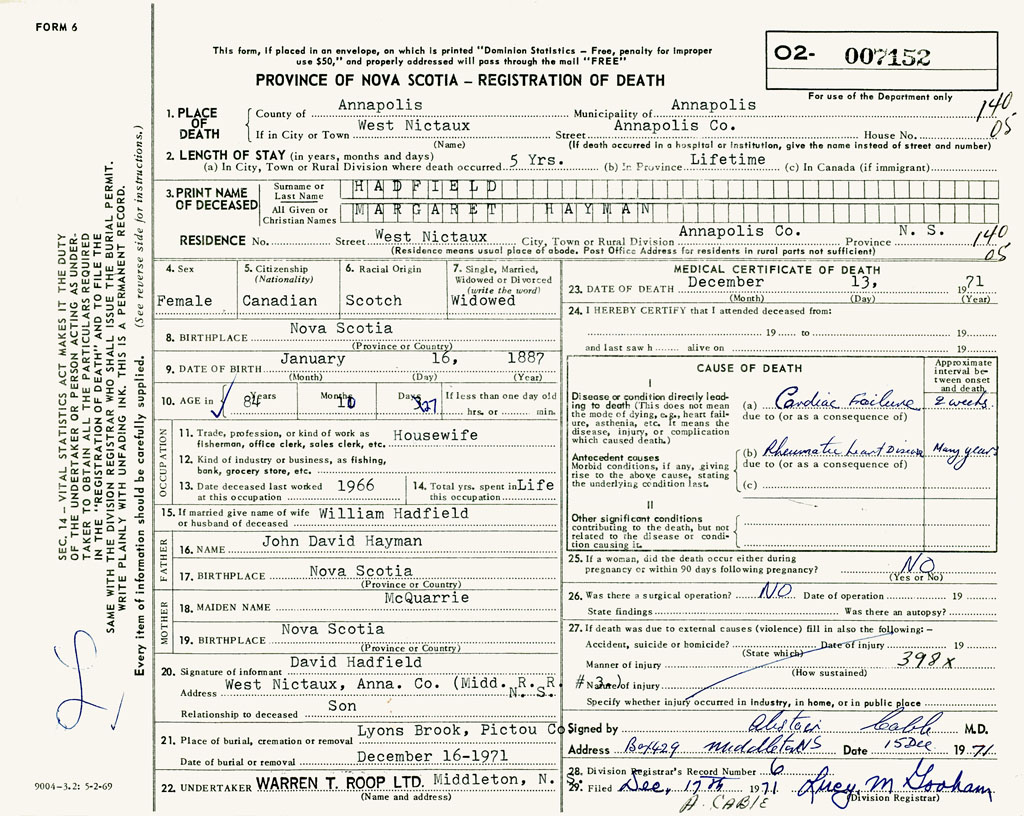 FORM 6
This form, if placed in an envelope, on which is printed "Dominion Statistics – Free, penalty for improper
use $50," and properly addressed will pass through the mail "FREE"
PROVINCE OF NOVA SCOTIA – REGISTRATION OF DEATH
O2- 007152
For use of the Department only
1. PLACE OF DEATH
County of Annapolis Municipality of Annapolis 140
If in City or Town West Nictaux Street Annapolis Co. House No. 05
(Name) (If death occurred in a hospital or Institution, give the name instead of street and number)
2. LENGTH OF STAY (in years, months and days)
(a) In City, Town or Rural Division where death occurred 5 Yrs. (b) In Province Lifetime (c) In Canada (if immigrant)
3. PRINT NAME OF DECEASED
Surname or Last Name HADFIELD
All Given or Christian Names MARGARET HAYMAN
RESIDENCE No. Street West Nictaux City, Town or Rural Division Annapolis Co. Province N. S. 140
(Residence means usual place of abode. Post Office Address for residents in rural parts not sufficient) 05
4. Sex
Female
5. Citizenship (Nationality)
Canadian
6. Racial Origin
Scotch
7. Single, Married, Widowed or Divorced (write the word)
Widowed
8. BIRTHPLACE Nova Scotia
(Province or Country)
9. DATE OF BIRTH January 16, 1887
(Month) (Day) (Year)
10. AGE in Years 84 Months 10 Days 27 If less than one day old
hrs. or min.
OCCUPATION
11. Trade, profession, or kind of work as fisherman, office clerk, sales clerk, etc. Housewife
12. Kind of industry or business, as fishing, bank, grocery store, etc.
13. Date deceased last worked at this occupation 1966
14. Total yrs. spent in this occupation Life
15. If married give name of wife or husband of deceased William Hadfield
FATHER
16. NAME John David Hayman
17. BIRTHPLACE Nova Scotia
(Province or Country)
MOTHER
18. MAIDEN NAME McQuarrie
19. BIRTHPLACE Nova Scotia
(Province or Country)
20. Signature of informant David Hadfield
Address West Nictaux, Anna. Co. (Midd. R. R. # 3.)
N. S.
Relationship to deceased Son
21. Place of burial, cremation or removal Lyons Brook, Pictou Co
Date of burial or removal December 16-1971
22. UNDERTAKER WARREN T. ROOP LTD. Middleton, N. S.
(Name and address)
MEDICAL CERTIFICATE OF DEATH
23. DATE OF DEATH December 13, 1971
(Month) (Day) (Year)
24. I HEREBY CERTIFY that I attended deceased from:
19 to 19
and last saw h alive on 19
CAUSE OF DEATH
Approximate interval between onset and death
I
Disease or condition directly leading to death (This does not mean the mode of dying, e.g., heart failure, asthenia, etc. It means the disease, injury, or complication which caused death.)
(a) Cardiac Failure 2 weeks
due to (or as a consequence of)
Antecedent causes
Morbid conditions, if any, giving rise to the above cause, stating the underlying condition last.
(b) Rheumatic Heart Disease Many years
due to (or as a consequence of)
(c)
II
Other significant conditions
contributing to the death, but not related to the disease or condition causing it.
25. If a woman, did the death occur either during pregnancy or within 90 days following pregnancy? NO
(Yes or No)
26. Was there a surgical operation? NO Date of operation 19
State findings Was there an autopsy?
27. If death was due to external causes (violence) fill in also the following:–
Accident, suicide or homicide? Date of injury 19
(State which)
Manner of injury 398x
(How sustained)
Nature of injury
Specify whether injury occurred in industry, in home, or in public place
Signed by Alistair Cable M.D.
Address Box 429 Middleton NS Date 15 Dec 1971
28. Division Registrar's Record Number 6
29. Filed Dec, 17th 1971 Lucy M
(Division Registrar)
A. CABLE
SEC. 14 – VITAL STATISTICS ACT MAKES IT THE DUTY
OF THE UNDERTAKER OR PERSON ACTING AS UNDER-
TAKER TO OBTAIN ALL THE PARTICULARS REQUIRED
IN THE "REGISTRATION OF DEATH" AND TO FILE THE
SAME WITH THE DIVISION REGISTRAR WHO SHALL ISSUE THE BURIAL PERMIT.
WRITE PLAINLY WITH UNFADING INK. THIS IS A PERMANENT RECORD.
Every item of information should be carefully supplied. (See reverse side for instructions.)
9004-3.2: 5-2-69